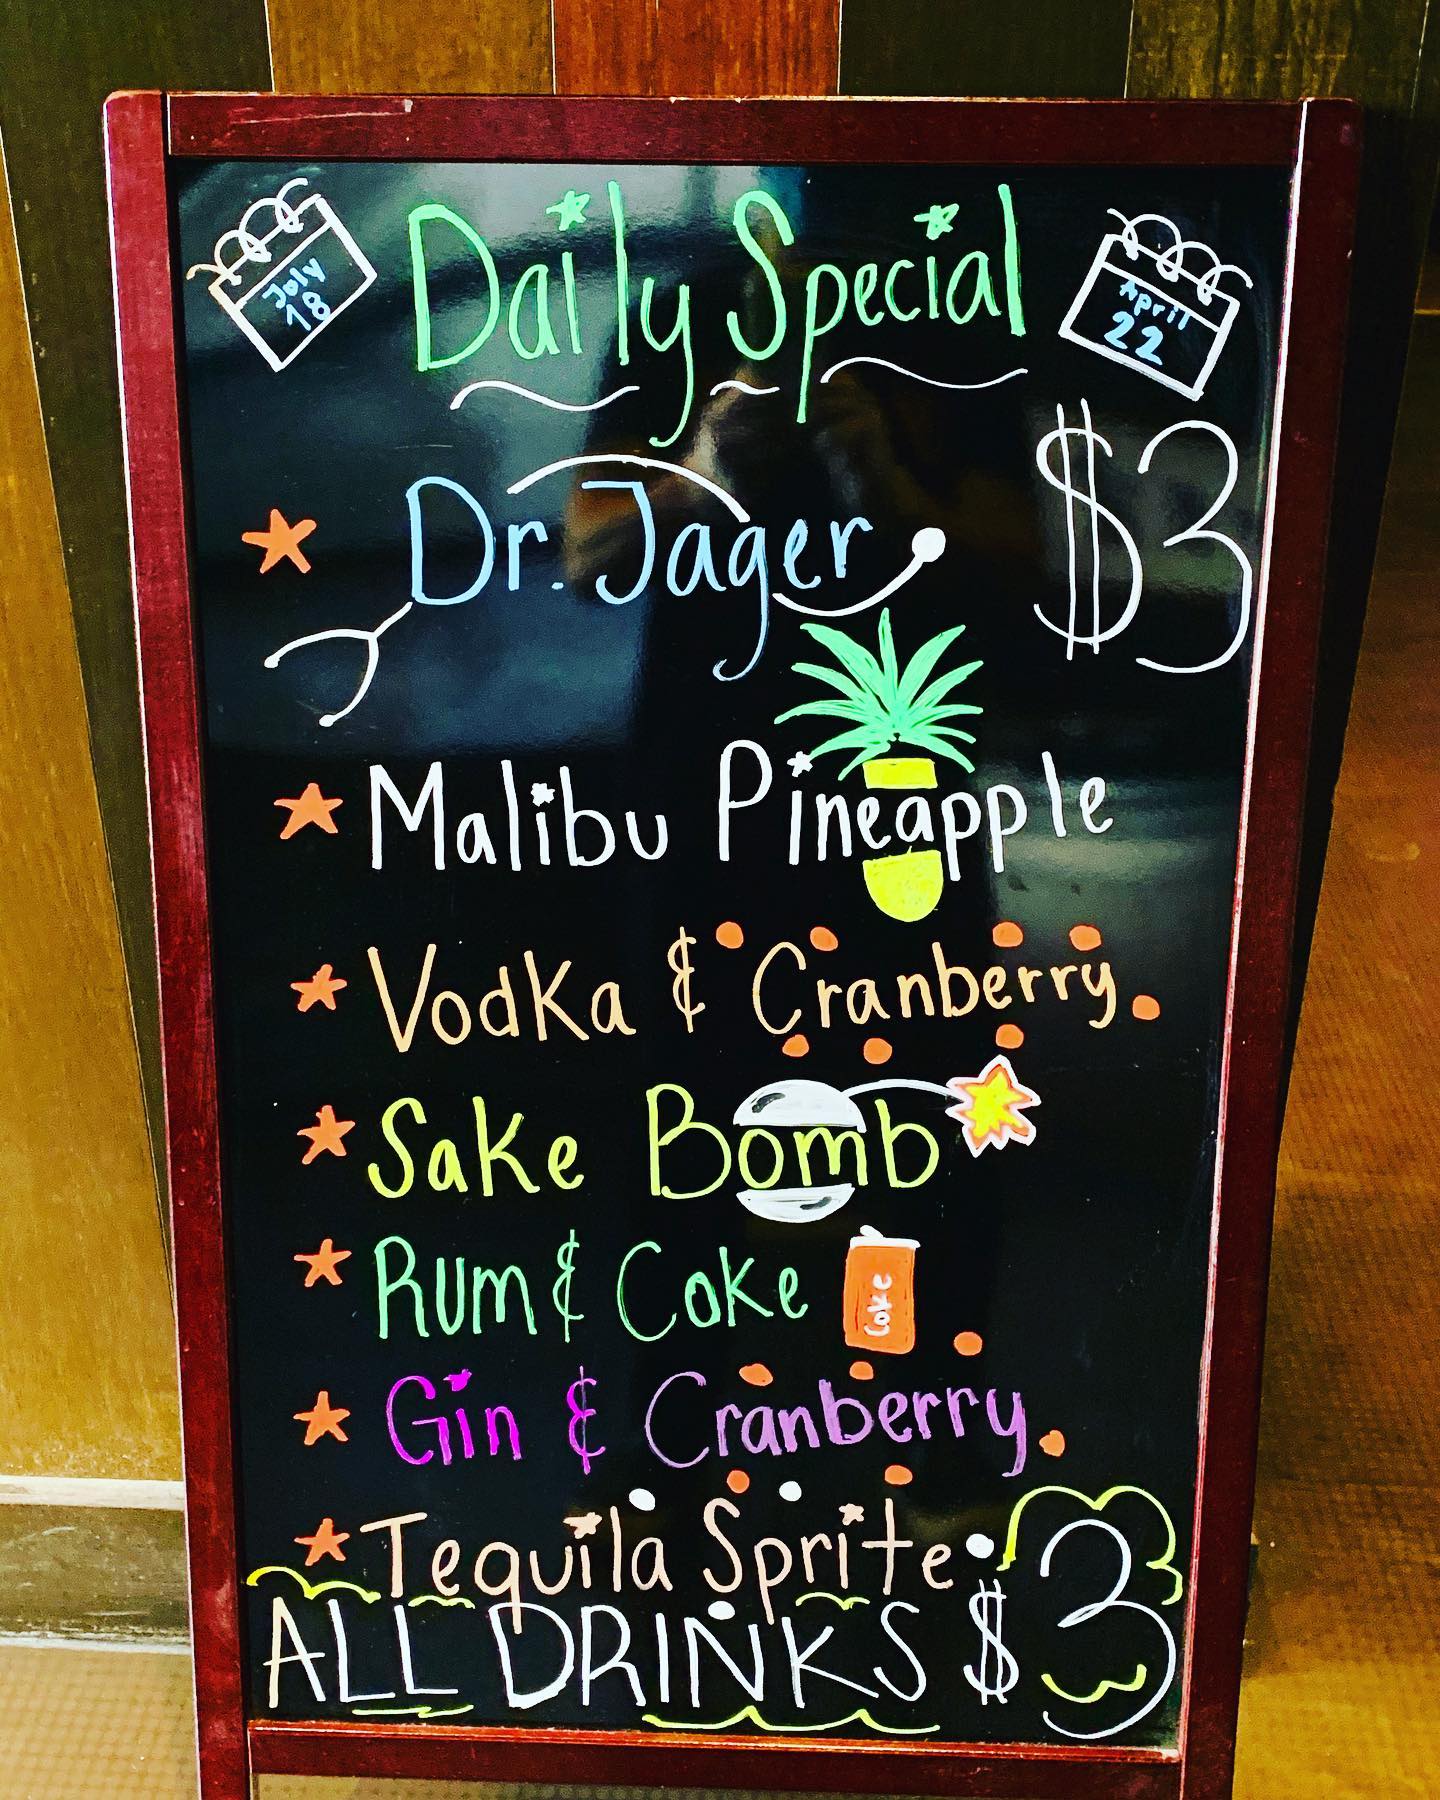 Daily Special
July
18
April
22
$3
Dr. Jager
Malibu Pineapple
Vodka & Cranberry
Sake Bomb
Rum & Coke
Coke
Gin & Cranberry
Tequila Sprite
ALL DRINKS $3